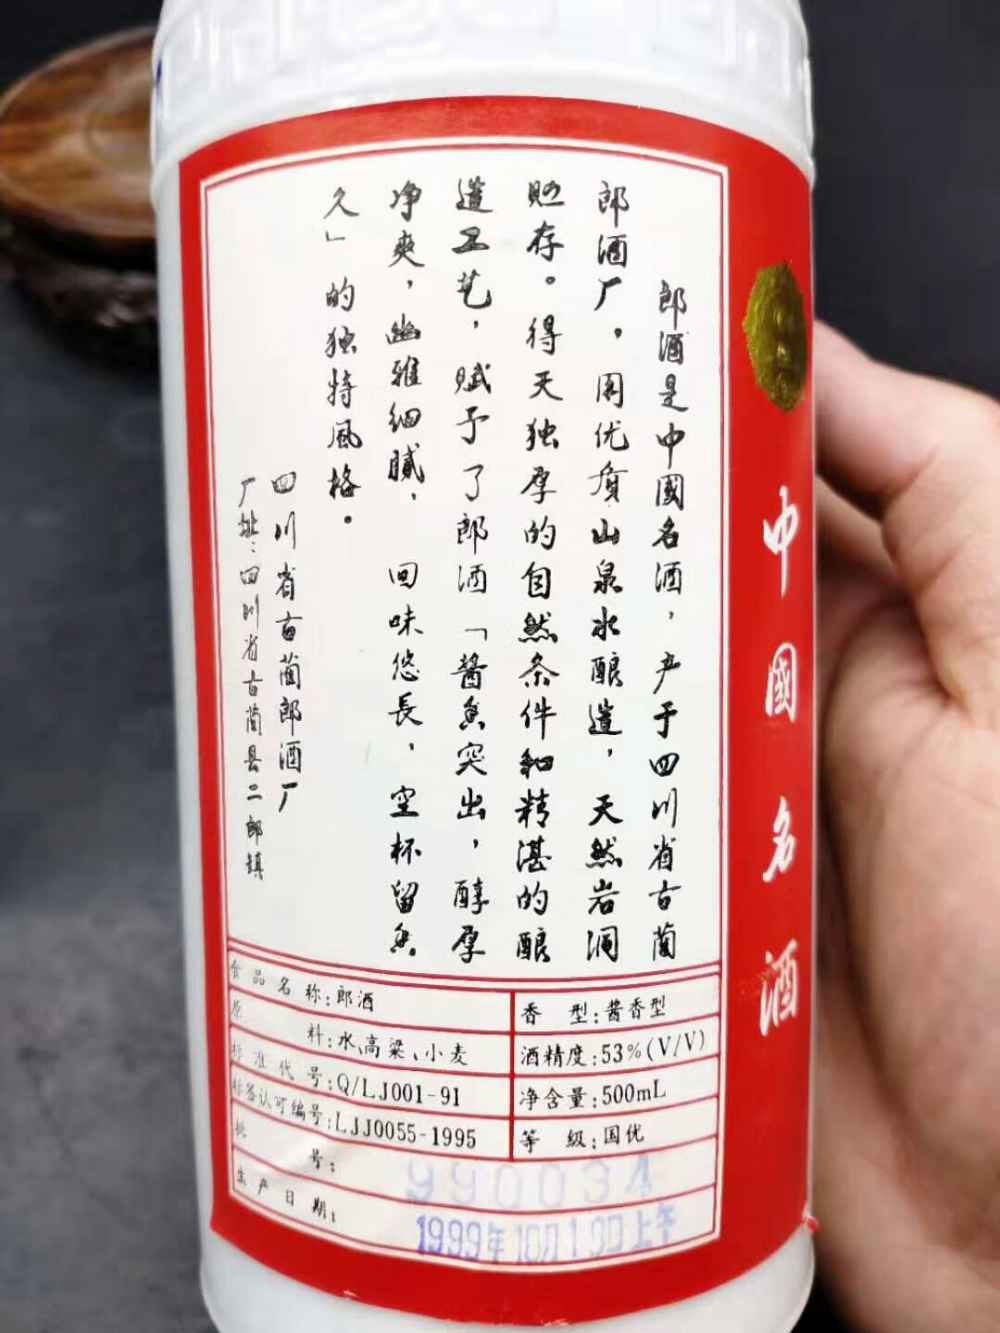 郎酒是中國名酒，产于四川省古蔺
郎酒厂。用优质山泉水酿造，天然岩洞
贮存。得天独厚的自然条件和精湛的酿
造工艺，赋予了郎酒「酱香突出，醇厚
净爽，幽雅细腻，回味悠長，空杯留香
久」的独特风格。
四川省古蔺郎酒厂
厂址：四川省古蔺县二郎镇
中國名酒
食品名称：郎酒
香型：酱香型
原料：水、高粱、小麦
酒精度：53%(V/V)
标准代号：Q/LJ001-91
净含量：500mL
标签认可编号：LJJ0055-1995
等级：国优
批号：990034
生产日期：1999年10月19日上午